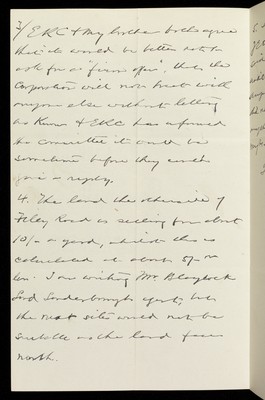 3/ EKC & my brother both agree
that it would be better not to
ask for a "firm offer", that the
Corporation will not treat with
anyone else without letting
us know & EKC has informed
the committee it would be
sometime before they could
give a reply.
4. The land the otherside of
Filey Road is selling for about
10/- a yard, whilst this is
calculated at about 5/- or
less. I am writing Mr. Blaylock
Lord Londesborough's agent, but
the next sites would not be
suitable as the land faces
north.